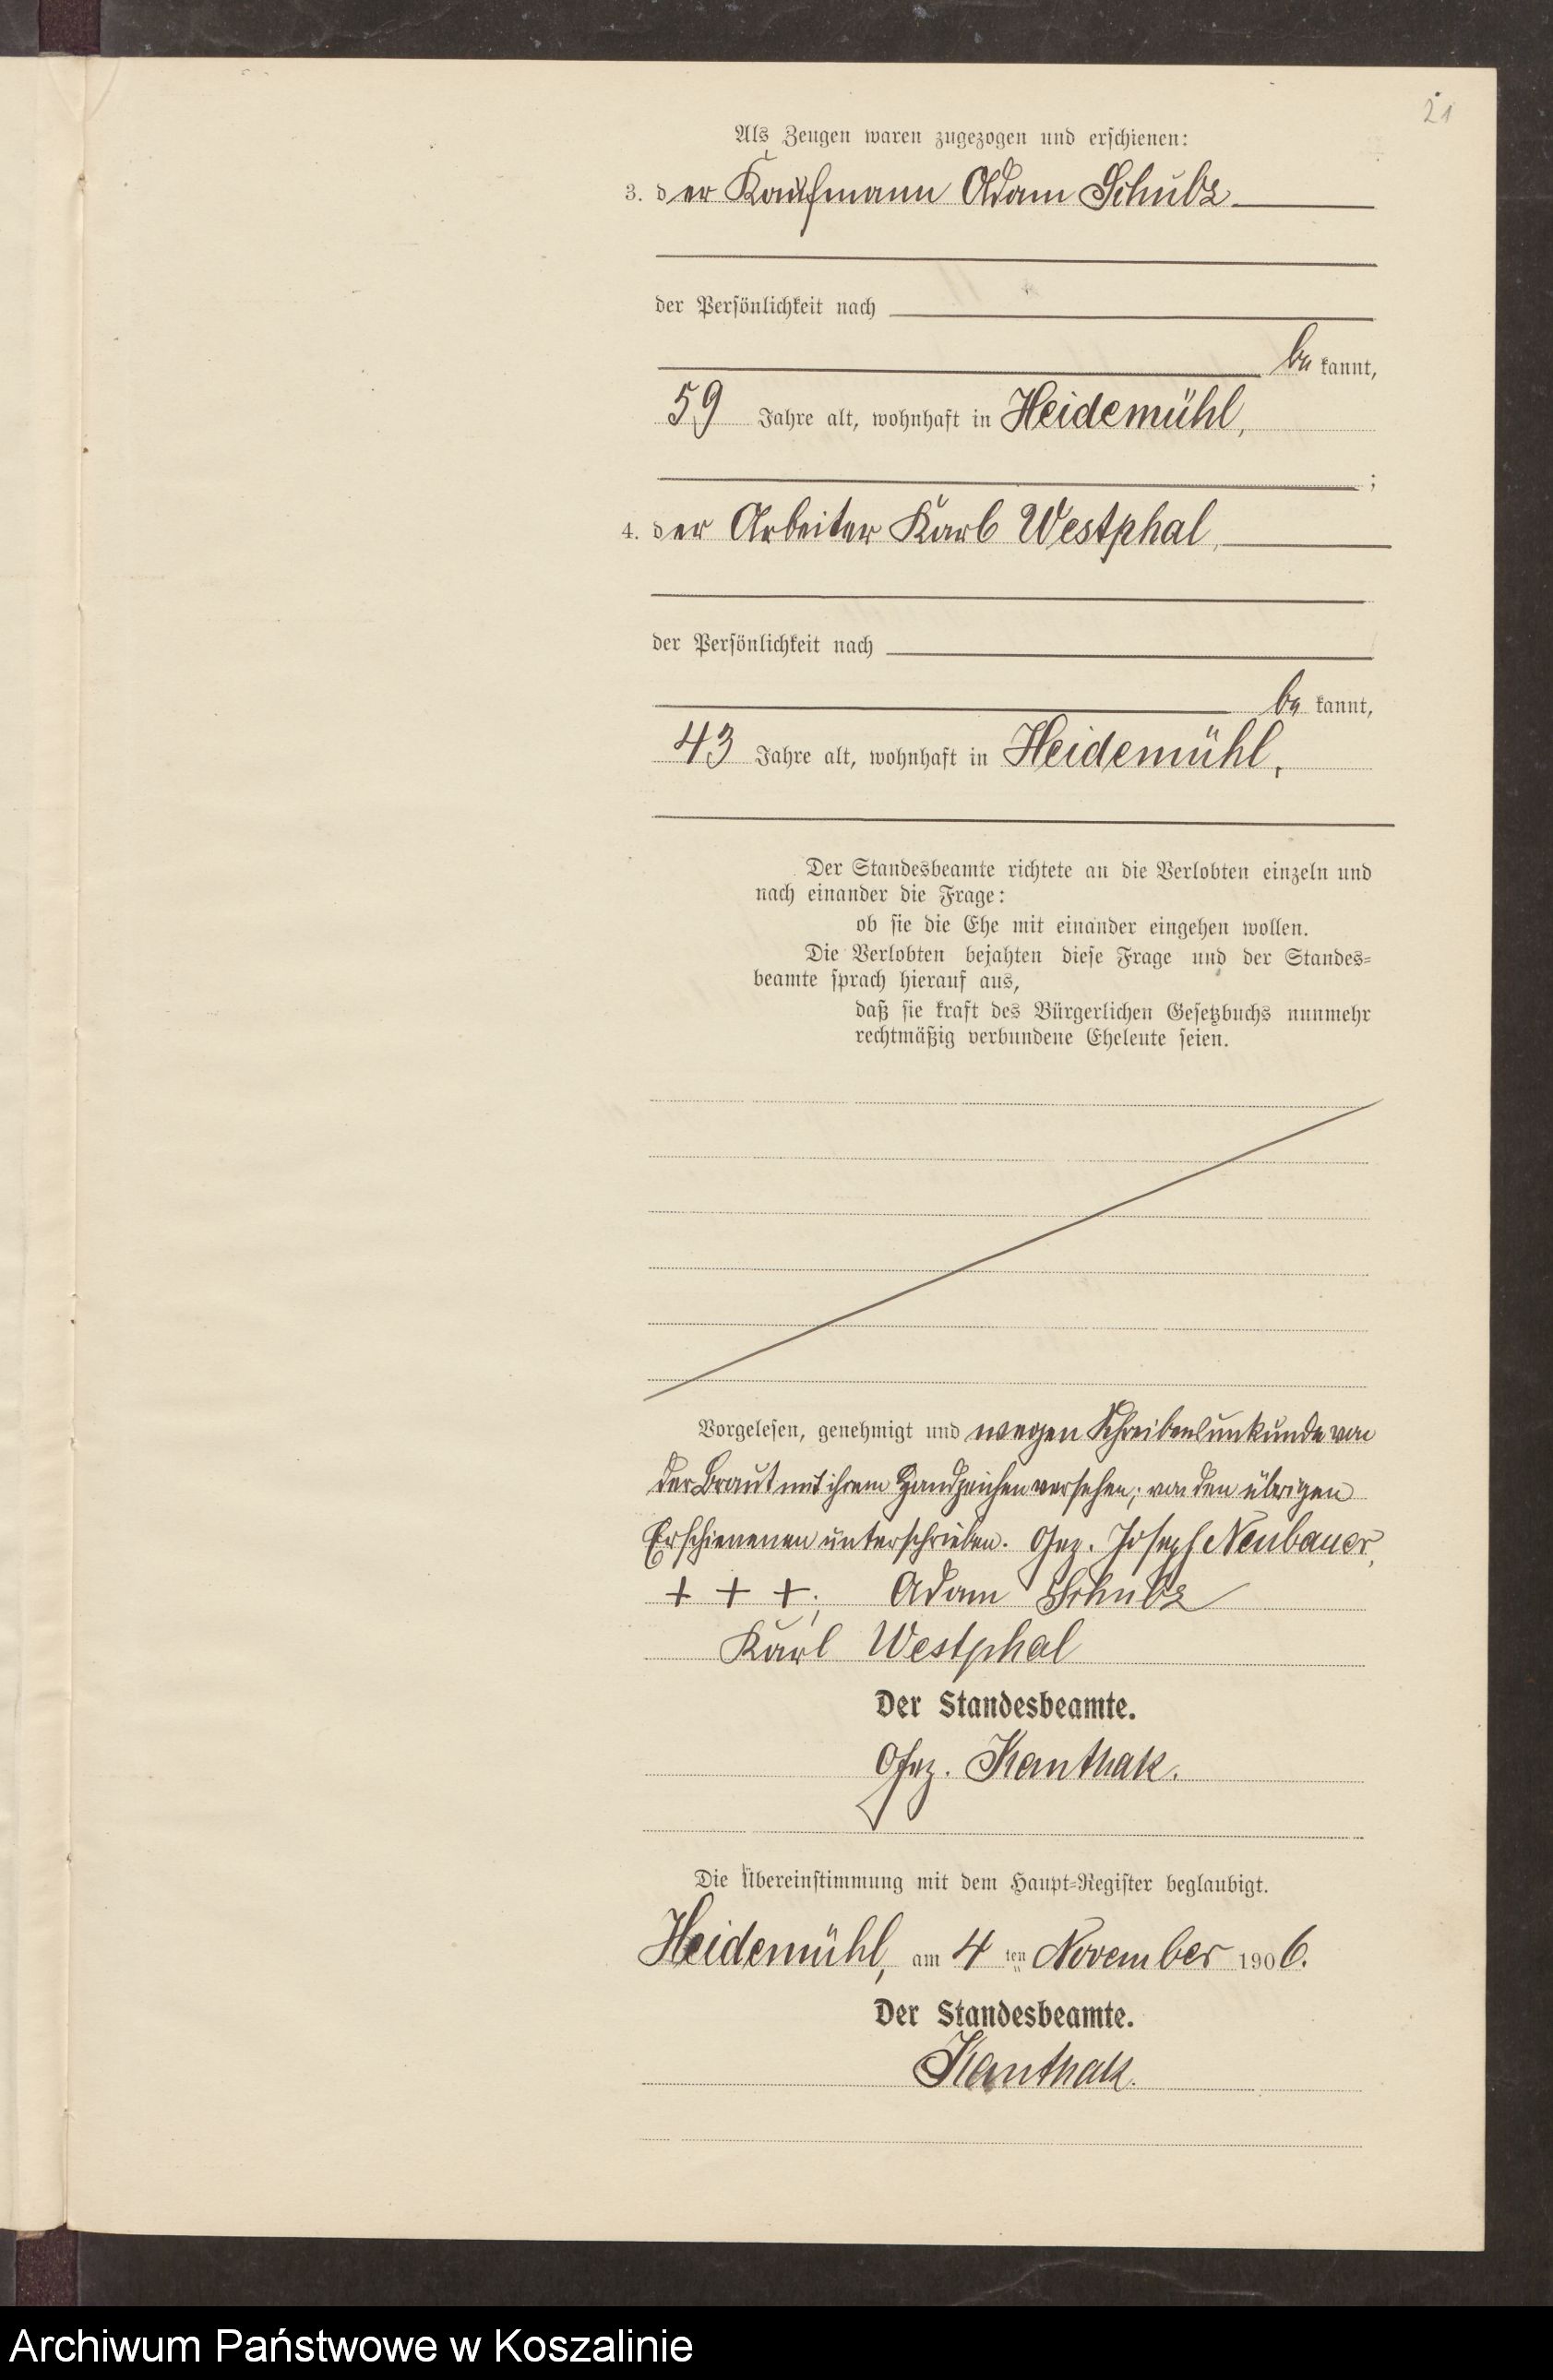 21
Als Zeugen waren zugezogen und erschienen:
3. der Kaufmann Adam Schulz
der Persönlichkeit nach
bekannt,
59 Jahre alt, wohnhaft in Heidemühl,
;
4. der Arbeiter Karl Westphal,
der Persönlichkeit nach
bekannt,
43 Jahre alt, wohnhaft in Heidemühl,
Der Standesbeamte richtete an die Verlobten einzeln und
nach einander die Frage:
ob sie die Ehe mit einander eingehen wollen.
Die Verlobten bejahten diese Frage und der Standes=
beamte sprach hierauf aus,
daß sie kraft des Bürgerlichen Gesetzbuchs nunmehr
rechtmäßig verbundene Eheleute seien.
Vorgelesen, genehmigt und wegen Schreibensunkunde von
der Braut mit ihrem Handzeichen versehen; von den übrigen
Erschienenen unterschrieben. Gez. Joseph Neubauer,
+ + +; Adam Schulz
Karl Westphal
Der Standesbeamte.
Gez. Kanthak.
Die Übereinstimmung mit dem Haupt=Register beglaubigt.
Heidemühl, am 4 ten November 1906.
Der Standesbeamte.
Kanthak.
Archiwum Państwowe w Koszalinie